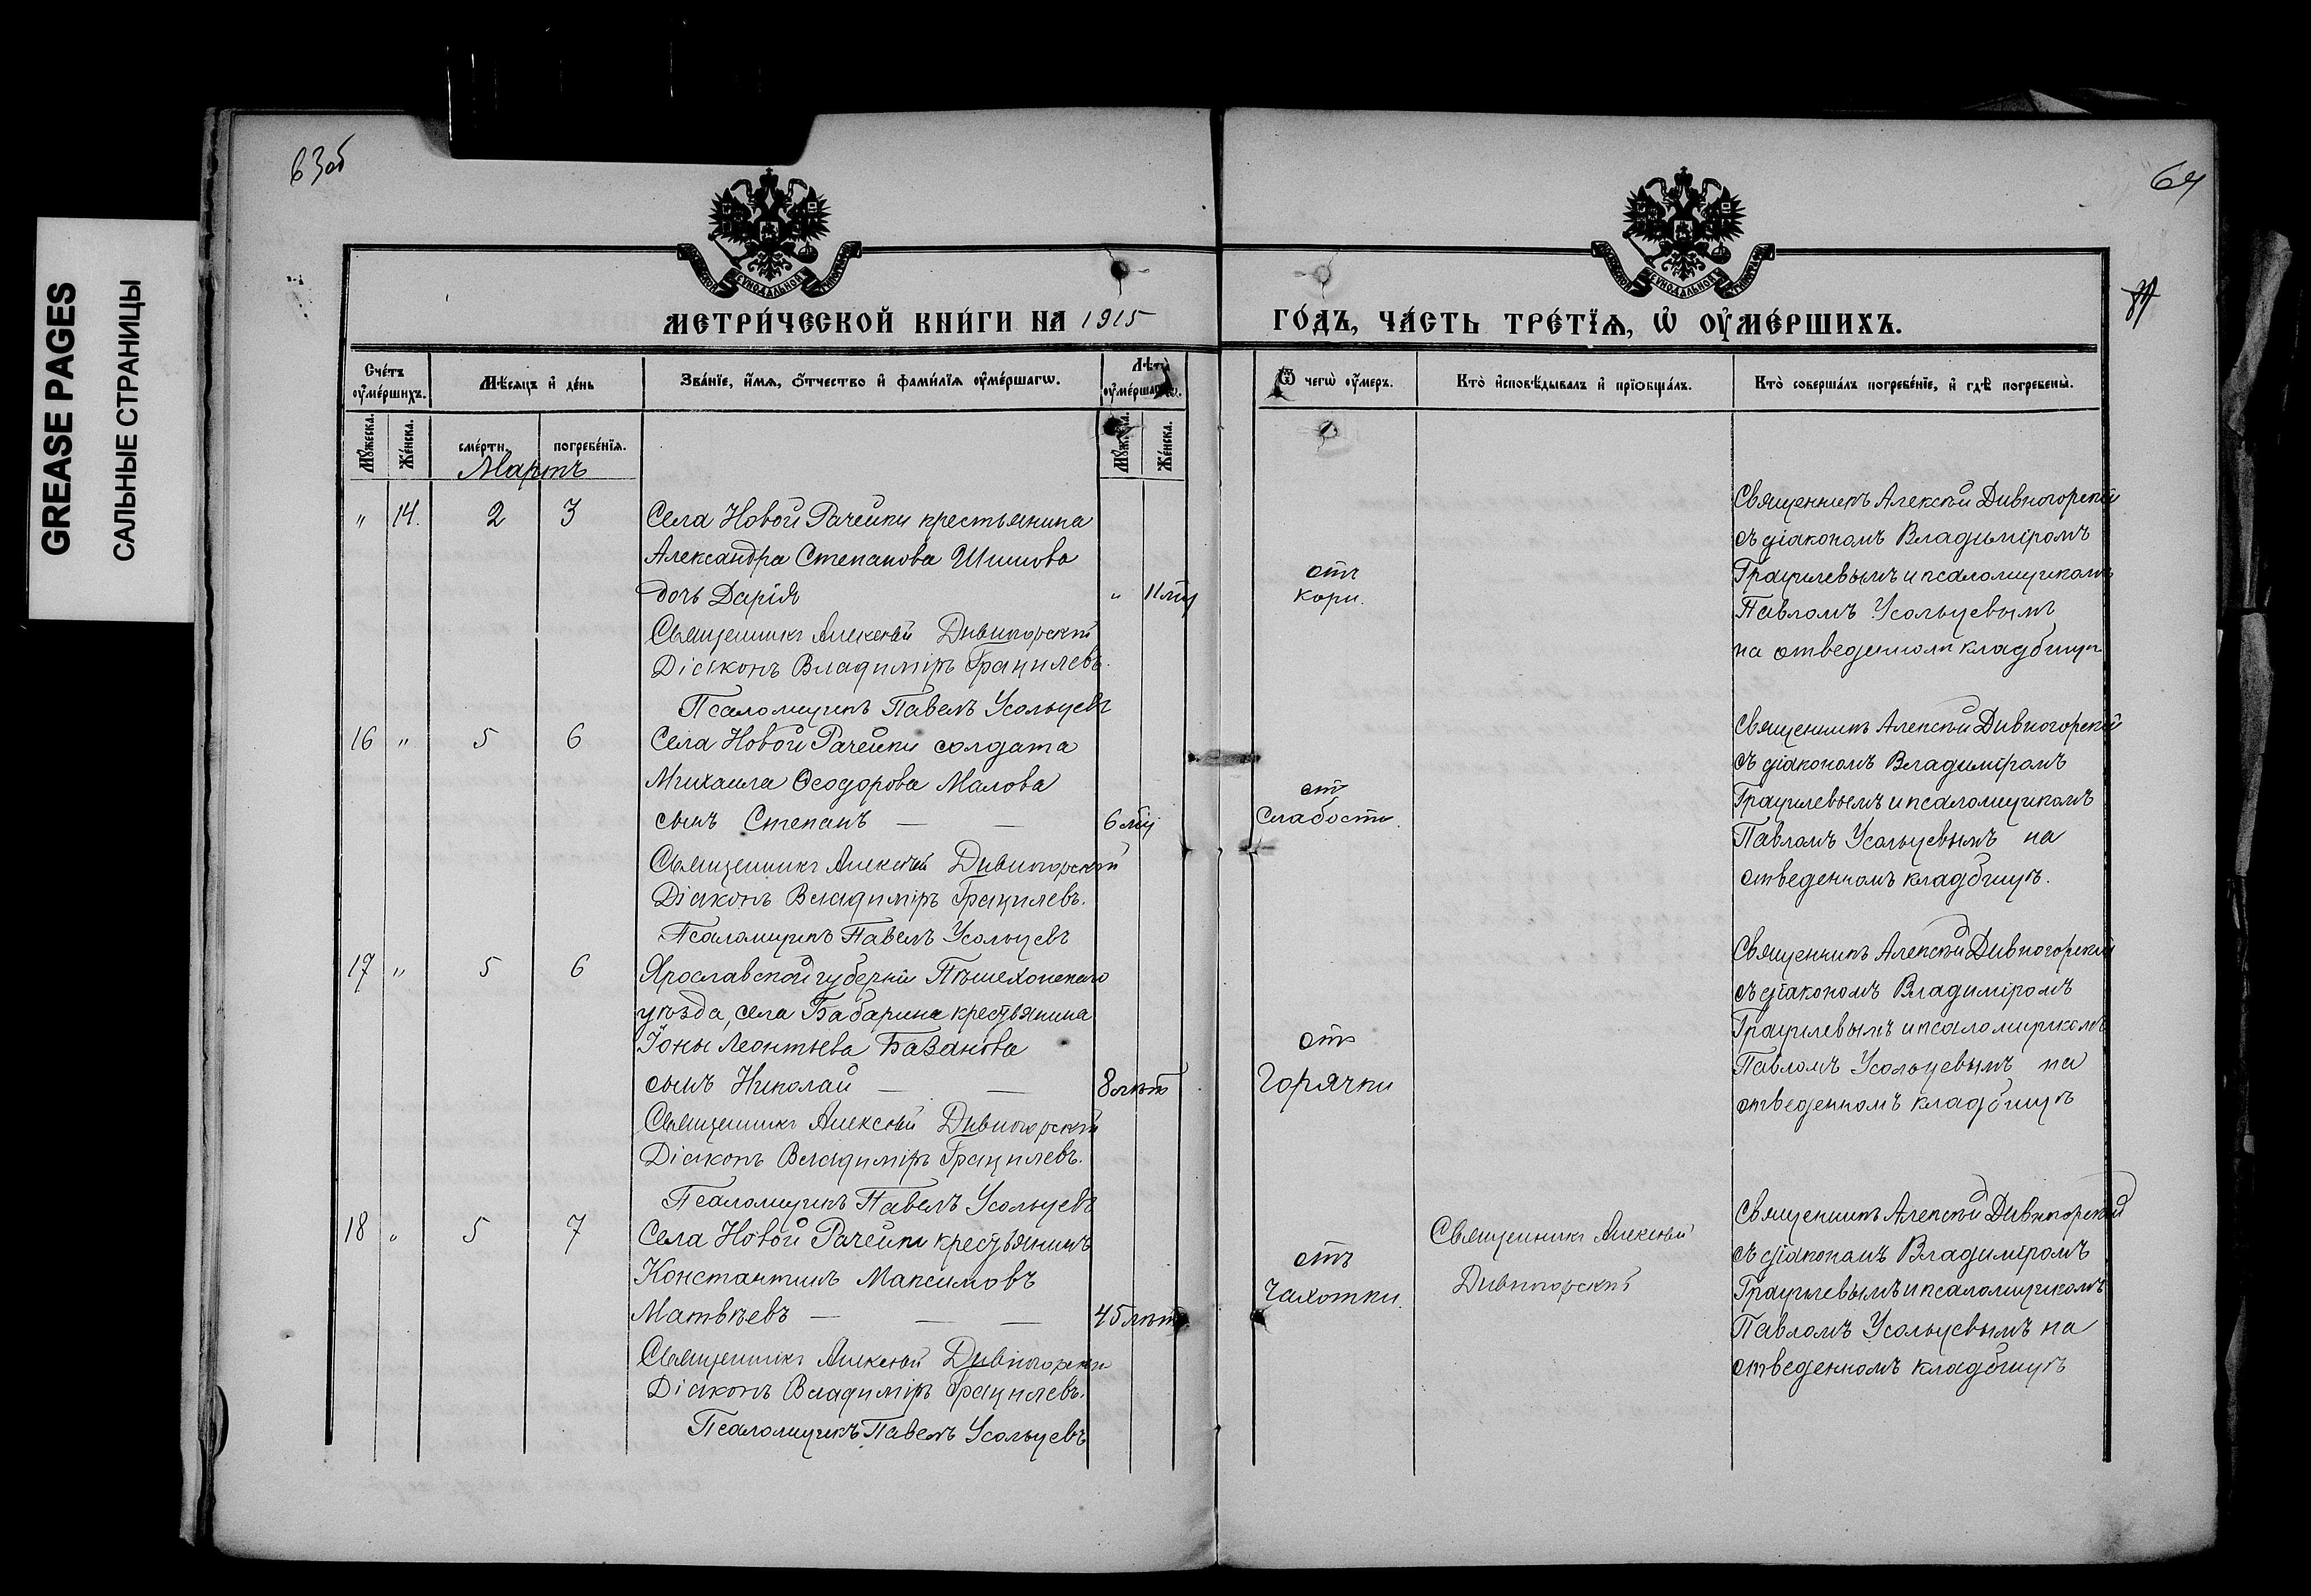 GREASE PAGES
САЛЬНЫЕ СТРАНИЦЫ
63об
64
МЕТРИ́ЧЕСКОЙ КНИ́ГИ НА 1915
ГО́ДЪ, ЧА́СТЬ ТРЕ́ТЇѦ, Ѡ҆ ОУ҆МЕ́РШИХЪ.
Сче́тъ оу҆ме́ршихъ.
Мѣ́сяцъ и҆ де́нь
Зва́нїе, и҆́мѧ, ѻ҆́тчество и҆ фами́лїѧ оу҆ме́ршагѡ.
Лѣ́та оу҆ме́ршагѡ.
Ѿ чегѡ̀ оу҆́меръ.
Кто̀ и҆сповѣ́дывалъ и҆ прїѡбща́лъ.
Кто̀ соверша́лъ погребе́нїе, и҆ гдѣ̀ погребены̀.
Мꙋ́жеска.
Же́нска.
сме́рти.
погребе́нїѧ.
Мꙋ́жеска.
Же́нска.
Мартъ
" 14. 2 3
Села Новой Рачейки крестьянина
Александра Степанова Шишова
дочь Дарія " 11 мц
Священникъ Алексѣй Дивногорскій
Діаконъ Владиміръ Грацилевъ.
Псаломщикъ Павелъ Усольцевъ
отъ
кори.
Священникъ Алексѣй Дивногорскій
съ діакономъ Владиміромъ
Грацилевымъ и псаломщикомъ
Павломъ Усольцевымъ
на отведенномъ кладбищѣ
16 " 5 6
Села Новой Рачейки солдата
Михаила Ѳеодорова Малова
сынъ Степанъ — — 6 мц
Священникъ Алексѣй Дивногорскій
Діаконъ Владиміръ Грацилевъ.
Псаломщикъ Павелъ Усольцевъ
отъ
Слабости.
Священникъ Алексѣй Дивногорскій
съ діакономъ Владиміромъ
Грацилевымъ и псаломщикомъ
Павломъ Усольцевымъ на
отведенномъ кладбищѣ.
17 " 5 6
Ярославской губерніи Пошехонскаго
уѣзда, села Бабарина крестьянина
Іоны Леонтьева Базанова
сынъ Николай — — 8 лѣт
Священникъ Алексѣй Дивногорскій
Діаконъ Владиміръ Грацилевъ.
Псаломщикъ Павелъ Усольцевъ
отъ
Горячки
Священникъ Алексѣй Дивногорскій
съ діакономъ Владиміромъ
Грацилевымъ и псаломщикомъ
Павломъ Усольцевымъ на
отведенномъ кладбищѣ
18 " 5 7
Села Новой Рачейки крестьянинъ
Константинъ Максимовъ
Матвѣевъ — — — 45 лѣт
Священникъ Алексѣй Дивногорскій
Діаконъ Владиміръ Грацилевъ.
Псаломщикъ Павелъ Усольцевъ
отъ
Чахотки.
Священникъ Алексѣй
Дивногорскій
Священникъ Алексѣй Дивногорскій
съ діакономъ Владиміромъ
Грацилевымъ и псаломщикомъ
Павломъ Усольцевымъ на
отведенномъ кладбищѣ